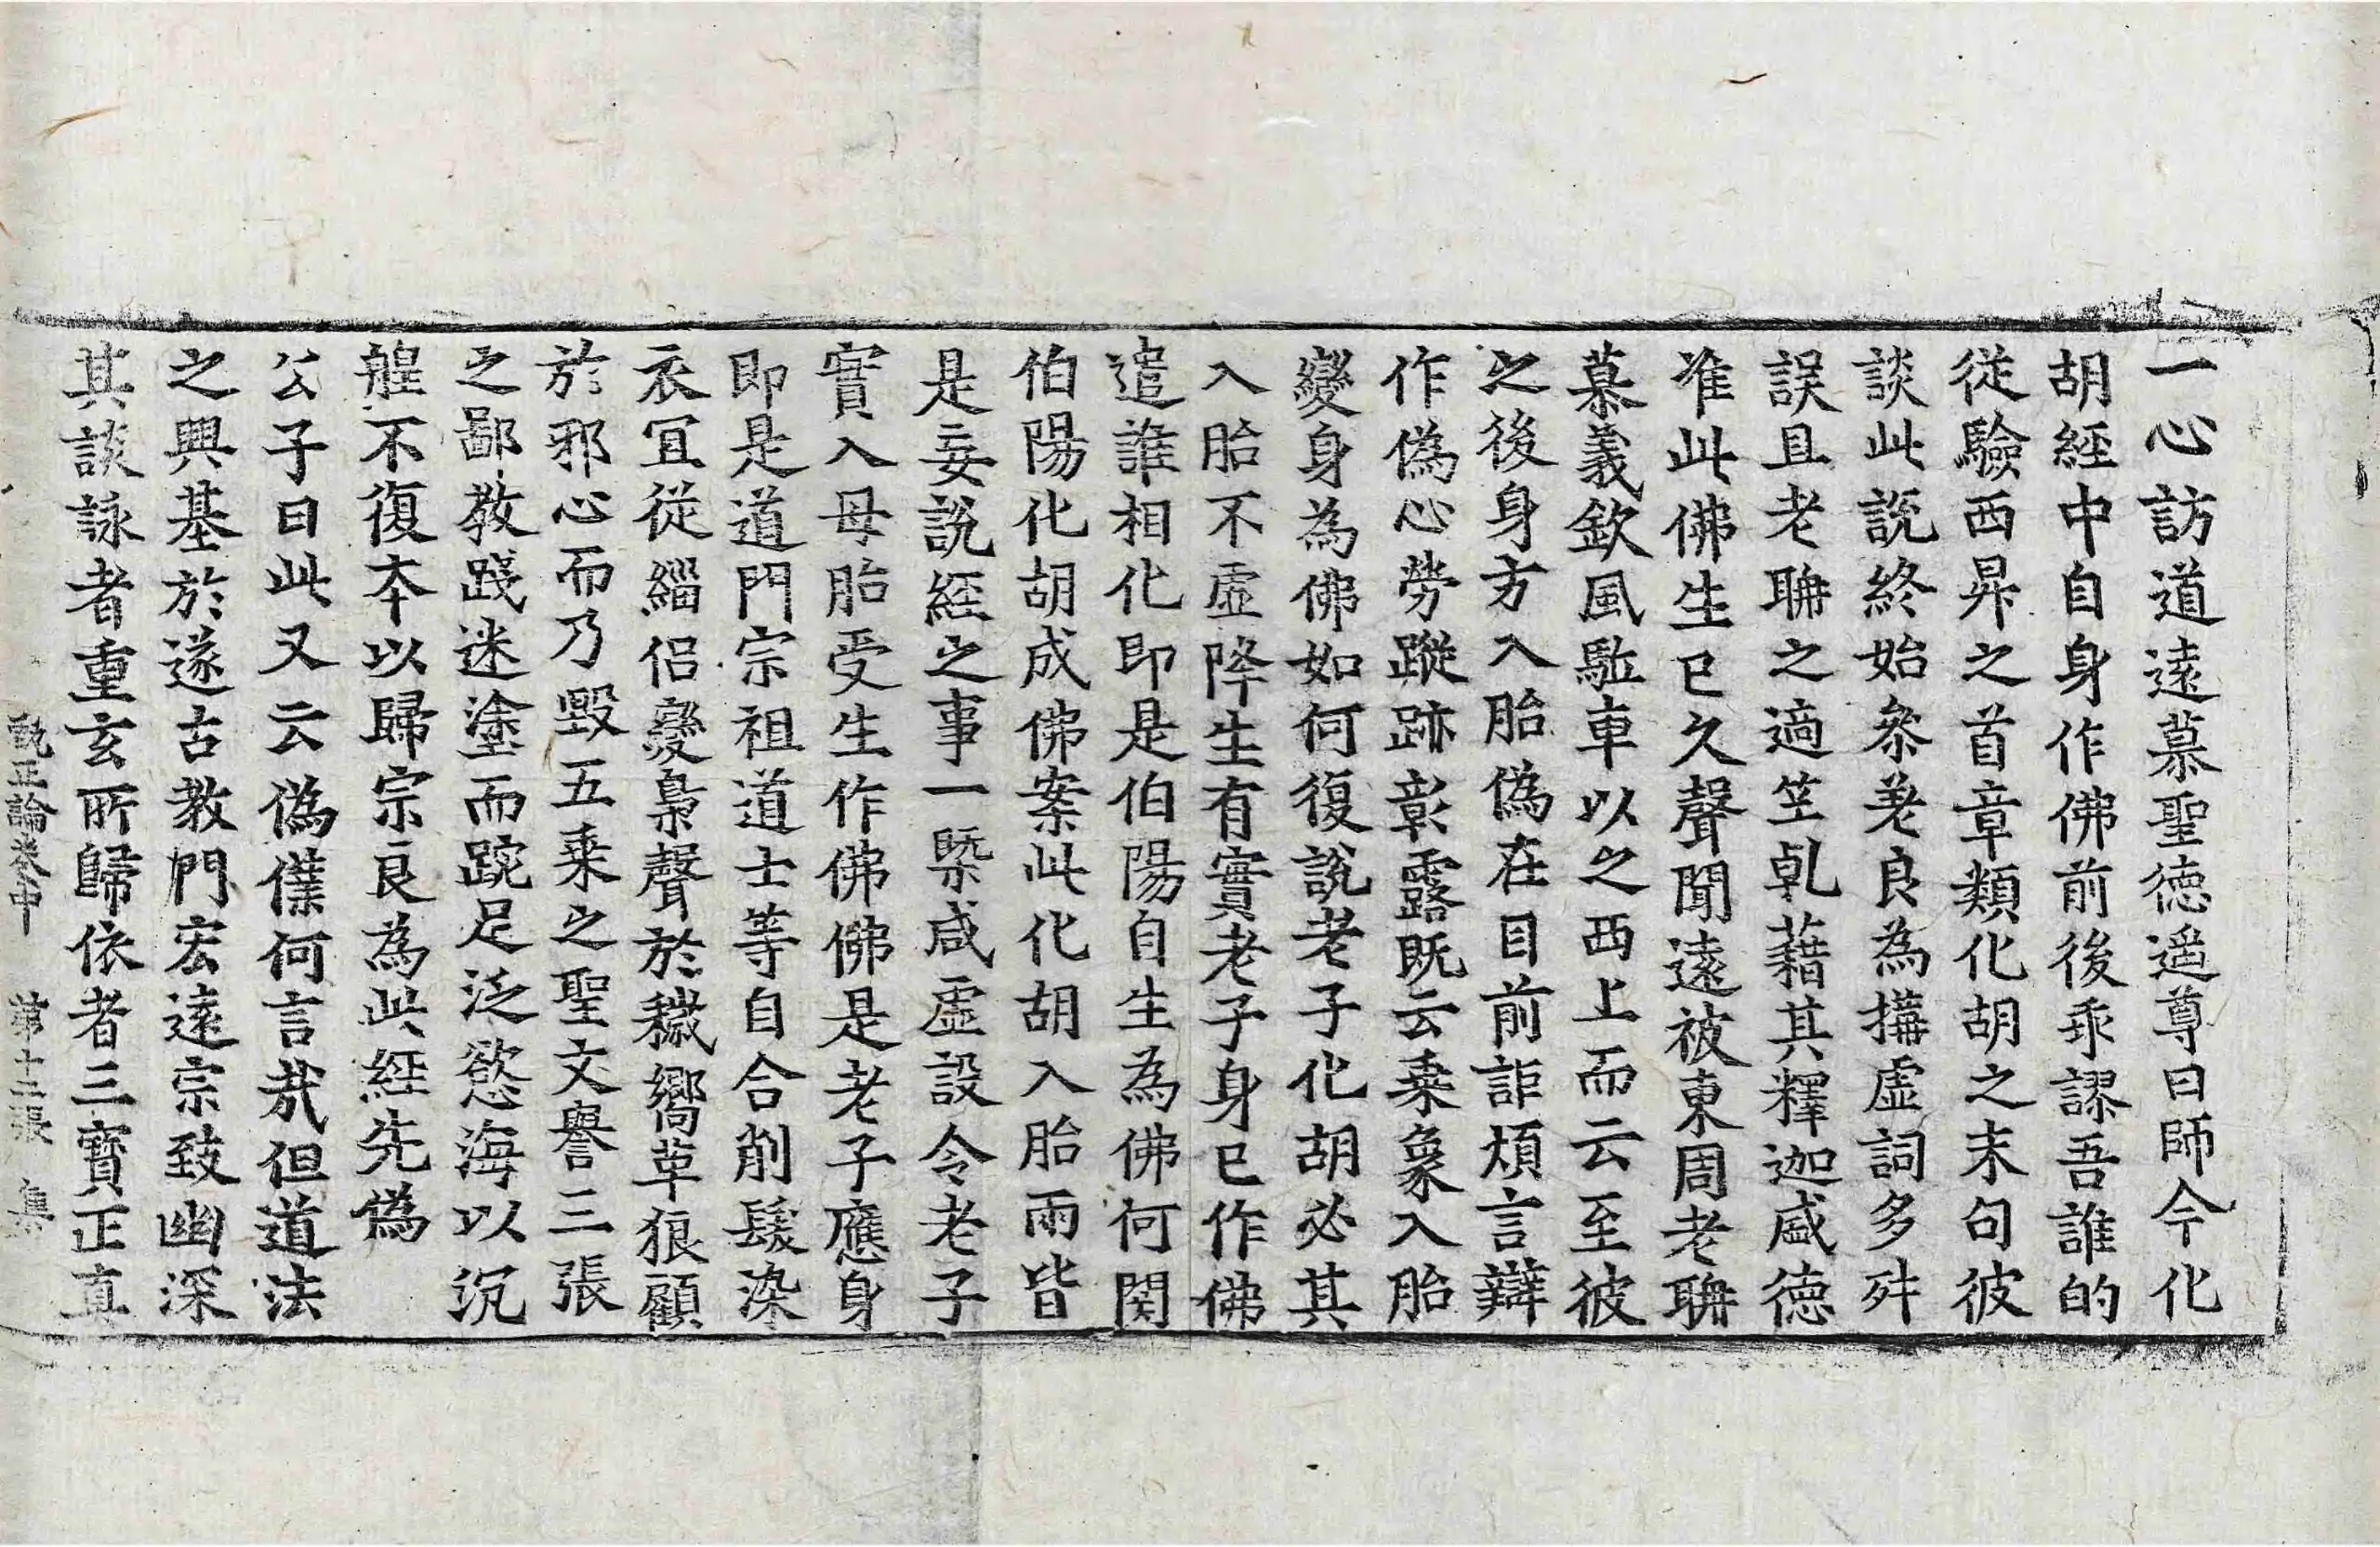 一心訪道遠慕聖德遥尊曰師今化
胡經中自身作佛前後乖謬吾誰的
從驗西昇之首章類化胡之末句彼
談此說終始叅差良為搆虛詞多舛
誤且老聃之適竺乹藉其釋迦威德
准此佛生已久聲聞遠被東周老聃
慕義欽風駈車以之西上而云至彼
之後身方入胎偽在目前詎煩言辯
作偽心勞蹤跡彰露既云乗象入胎
變身為佛如何復說老子化胡必其
入胎不虛降生有實老子身已作佛
遣誰相化即是伯陽自生為佛何関
伯陽化胡成佛案此化胡入胎兩皆
是妄說經之事一槩咸虛設令老子
實入母胎受生作佛佛是老子應身
即是道門宗祖道士等自合削髮染
衣冝從緇侣變梟聲於穢嚮革狼顧
於邪心而乃毀五乗之聖文譽三張
之鄙教踐迷塗而踠足泛慾海以沉
艎不復夲以歸宗良為此經先偽
公子曰此又云偽僕何言哉但道法
之興基於遂古教門宏遠宗致幽深
其談詠者重玄所歸依者三寶正真
甄正論卷中　第十二張　集